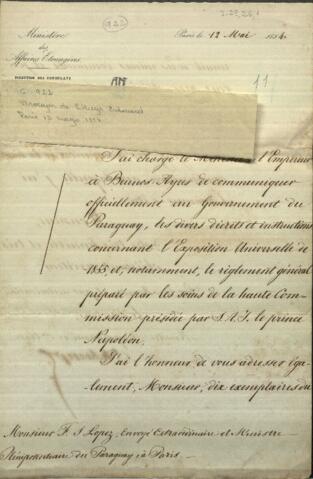 922
Ministère
des
Affaires Étrangères
DIRECTION DES CONSULATS
Paris le 12 Mai 1854.
11
G-922
Paris 12 mayo 1854
J'ai chargé le Ministre de l'Empereur
à Buenos-Ayres de communiquer
officiellement au Gouvernement du
Paraguay, les divers décrets et instructions
concernant l'Exposition Universelle de
1855 et, notamment, le règlement général
préparé par les soins de la haute Com-
mission présidée par S. A. I. le prince
Napoléon.
J'ai l'honneur de vous adresser éga-
lement, Monsieur, dix exemplaires du
Monsieur F. S Lopez, Envoyé Extraordinaire et Ministre
Plénipotentiaire du Paraguay à Paris.